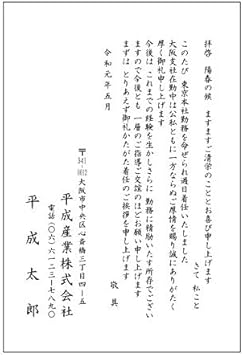 拝啓　陽春の候　ますますご清栄のこととお喜び申し上げます
さて 私こと
このたび 東京本社勤務を命ぜられ過日着任いたしました
大阪支社在勤中は公私ともに一方ならぬご厚情を賜り誠にありがたく
厚く御礼申し上げます
今後は これまでの経験を生かしさらに 勤務に精励いたす所存でござい
ますので今後とも 一層のご指導ご交誼のほどお願い申し上げます
まずは とりあえず御礼かたがた着任のご挨拶を申し上げます
敬具
令和元年五月
〒541-0012 大阪市中央区心斎橋三丁目四－五
平成産業株式会社
電話（〇六）六一二三－七八九〇
平成太郎